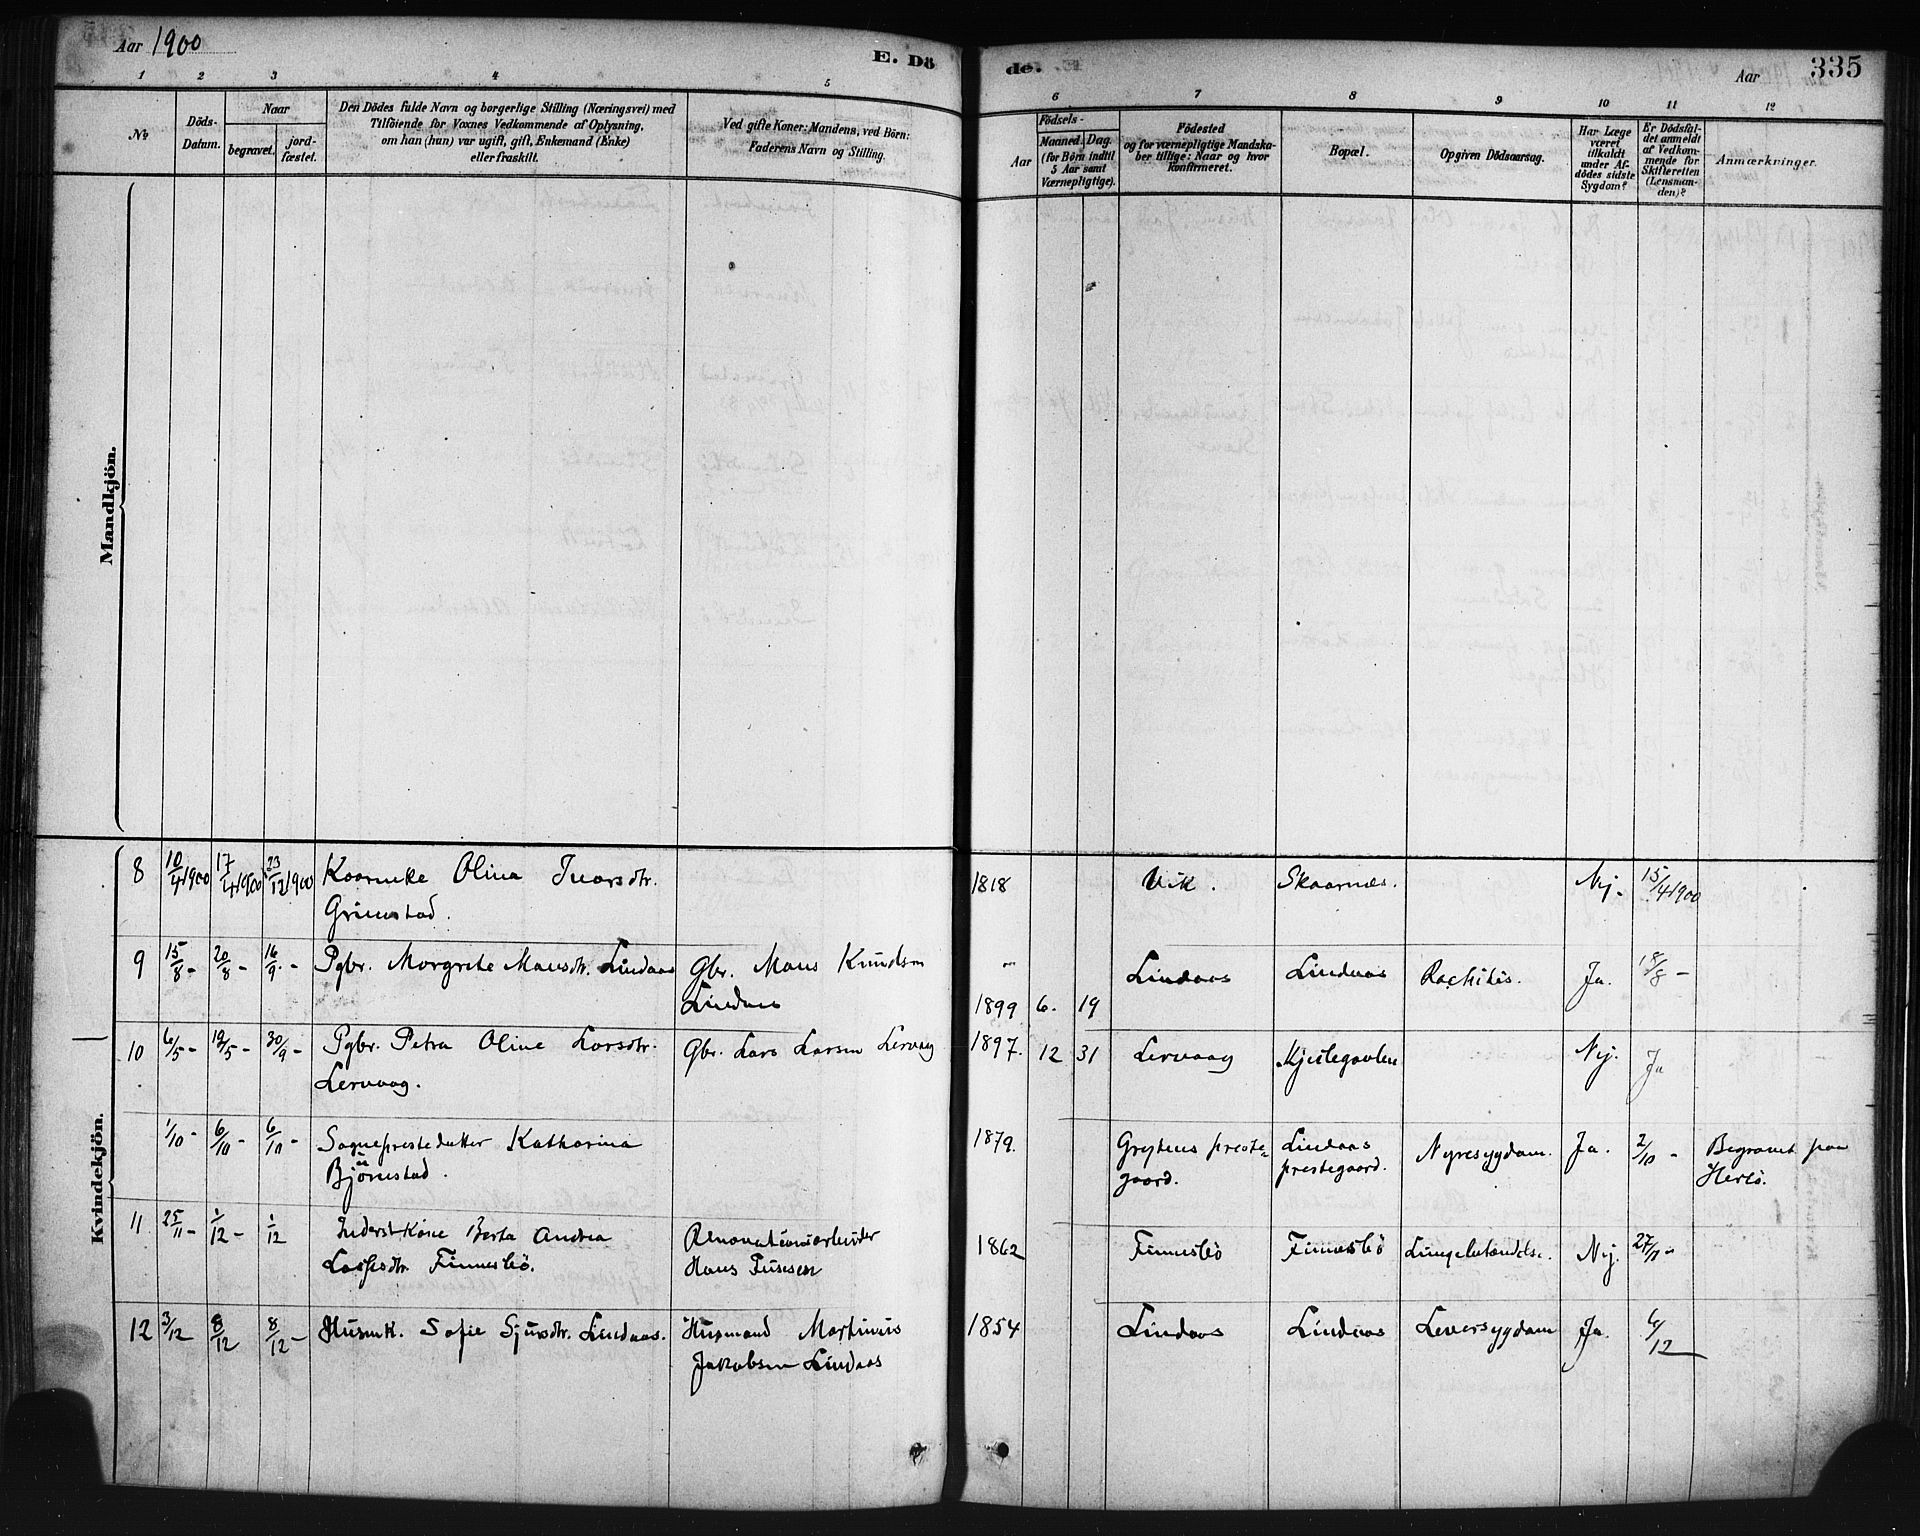 Aar 1900
E. Dö
de.
Aar
335
1 2 3 4 5 6 7 8 9 10 11 12
No
Döds-
Datum.
Naar
begravet.
jord-
fæstet.
Den Dödes fulde Navn og borgerlige Stilling (Næringsvei) med
Tilföiende for Voxnes Vedkommende af Oplysning,
om han (hun) var ugift, gift, Enkemand (Enke)
eller fraskilt.
Ved gifte Koner: Mandens, ved Börn:
Faderens Navn og Stilling.
Födsels-
Aar
Maaned.
Dag.
(for Börn indtil
5 Aar samt
Værnepligtige).
Födested
og for værnepligtige Mandska-
ber tillige: Naar og hvor
Konfirmeret.
Bopæl.
Opgiven Dödsaarsag.
Har Læge
været
tilkaldt
under Af-
dödes sidste
Sygdom?
Er Dödsfal-
det anmeldt
af Vedkom-
mende for
Skifteretten
(Lensman-
den)?
Anmærkninger.
Mandkjön.
Kvindekjön.
8 10/4 1900 17/4 1900 23/12 1900 Olina Ivarsdtr. 1818 Vik. Skaarnæs. Nej. 15/4 1900
Grimstad.
9 15/8 - 20/8 - 16/9 - Pgbr. Margrete Mansdtr. Lindaas Gbr. Mons Knudsen Lindaas Lindaas Rachitis. Ja. 18/8 -
Lindaas 1899 6. 19
10 6/5 - 12/5 - 30/9 - Pgbr. Petra Oline Larsdtr. Gbr. Lars Larsen Lervaag 1897. 12 31 Lervaag Kjeilegavlen Nej. Ja
Lervaag.
1/10 - 6/10 - 6/10 - Sogneprestedatter Katharina 1879. Grytens preste- Lindaas Nyresygdam. Ja. 2/10 - Begravet paa
Björnestad. gaard. prestegaard. Herlö.
11 25/11 - 1/12 - 1/12 Inderst Kone Berta Andrea Renovationsarbeider 1862 Finnesbö Finnesbö Lungebetændelse. Nej. 27/11 -
Finnesbö. Hans
12 3/12 8/12 8/12 - Husmk. Sofie Sjursdtr. Lindaas. Husmand Martinius 1854 Lindaas Lindaas Leversygdam Ja. 6/12
Jakobsen Lindaas